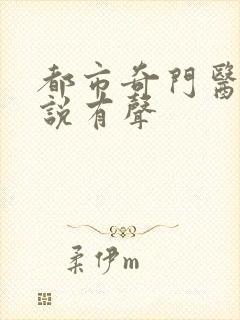 都市奇門醫
説有聲
柔伊m